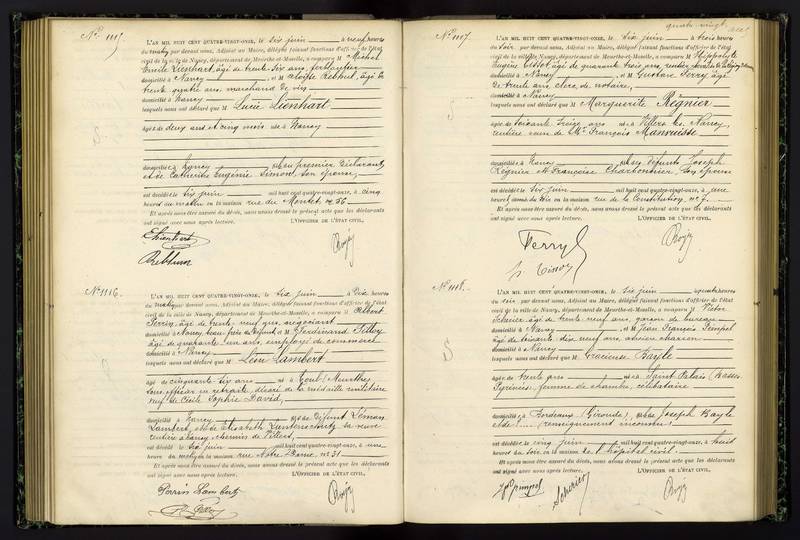 N° 1115
L'AN MIL HUIT CENT QUATRE-VINGT-ONZE, le six juin à neuf heures
du matin par devant nous, Adjoint au Maire, délégué faisant fonctions d'officier de l'état
civil de la ville de Nancy, département de Meurthe-et-Moselle, a comparu M Michel
Emile Lienhart, âgé de trente six ans, ferblantier
domicilié à Nancy et M Aloïse Rebhun, âgé de
trente quatre ans, marchand de vin
domicilié à Nancy
lesquels nous ont déclaré que M Lucie Lienhart
âgée de deux ans et cinq mois née à Nancy
domiciliée à Nancy fille du premier déclarant
et de Catherine Eugénie Simont, son épouse,
est décédée le six juin mil huit cent quatre-vingt-onze, à cinq
heures du matin en la maison rue du Montet, n° 56
Et après nous être assuré du décès, nous avons dressé le présent acte que les déclarants
ont signé avec nous après lecture. L'OFFICIER DE L'ÉTAT CIVIL,
ELienhart
Rebhun
N° 1116.
L'AN MIL HUIT CENT QUATRE-VINGT-ONZE, le six juin à dix heures
du matin par devant nous, Adjoint au Maire, délégué faisant fonctions d'officier de l'état
civil de la ville de Nancy, département de Meurthe-et-Moselle, a comparu M Albert
Perrin, âgé de trente neuf ans, négociant
domicilié à Nancy, beau frère du défunt et M Ferdinand
âgé de quarante un ans, employé de commerce
domicilié à Nancy
lesquels nous ont déclaré que M Léon Lambert
âgé de cinquante six ans né à Toul (Meurthe)
sous officier en retraite, décoré de la médaille militaire
veuf de Cécile Sophie David,
domicilié à Nancy fils de défunt Léman
Lambert, et de Elisabeth sa veuve
rentière à Nancy chemin de Villers,
est décédé le six juin mil huit cent quatre-vingt-onze, à une
heure du matin en la maison rue Notre Dame, n° 31
Et après nous être assuré du décès, nous avons dressé le présent acte que les déclarants
ont signé avec nous après lecture. L'OFFICIER DE L'ÉTAT CIVIL,
Perrin Lambert
quatre-vingt
N° 1117.
L'AN MIL HUIT CENT QUATRE-VINGT-ONZE, le six juin à trois heures
du soir par devant nous, Adjoint au Maire, délégué faisant fonctions d'officier de l'état
civil de la ville de Nancy, département de Meurthe-et-Moselle, a comparu M Hippolyte
Eugène âgé de quarante trois ans, rentier
domicilié à Nancy et M Gustave Ferry âgé
de trente ans, clerc de notaire,
domicilié à Nancy
lesquels nous ont déclaré que M Marguerite Régnier
âgée de soixante treize ans née à Villers lès Nancy,
rentière veuve de M. François
domiciliée à Nancy fille des défunts Joseph
Régnier et Françoise Charbonnier, son épouse
est décédée le six juin mil huit cent quatre-vingt-onze, à une
heure du soir en la maison rue de la Constitution, n° 7.
Et après nous être assuré du décès, nous avons dressé le présent acte que les déclarants
ont signé avec nous après lecture. L'OFFICIER DE L'ÉTAT CIVIL,
Ferry
N° 1118.
L'AN MIL HUIT CENT QUATRE-VINGT-ONZE, le six juin à quatre heures
du soir, par devant nous, Adjoint au Maire, délégué faisant fonctions d'officier de l'état
civil de la ville de Nancy, département de Meurthe-et-Moselle, a comparu M Victor
Scherier âgé de trente neuf ans, garçon de bureau
domicilié à Nancy et M Jean François Pimpel
âgé de soixante dix neuf ans, ancien
domicilié à Nancy
lesquels nous ont déclaré que M Gracieuse Bayle
âgée de trente ans née à Saint Palais (Basses
Pyrénées), femme de chambre, célibataire
domiciliée à Bordeaux (Gironde), fille de Joseph Bayle
et de (renseignement inconnu)
est décédée le cinq juin mil huit cent quatre-vingt-onze, à huit
heures du soir, en la maison de l'hôpital civil.
Et après nous être assuré du décès, nous avons dressé le présent acte que les déclarants
ont signé avec nous après lecture. L'OFFICIER DE L'ÉTAT CIVIL,
Scherier